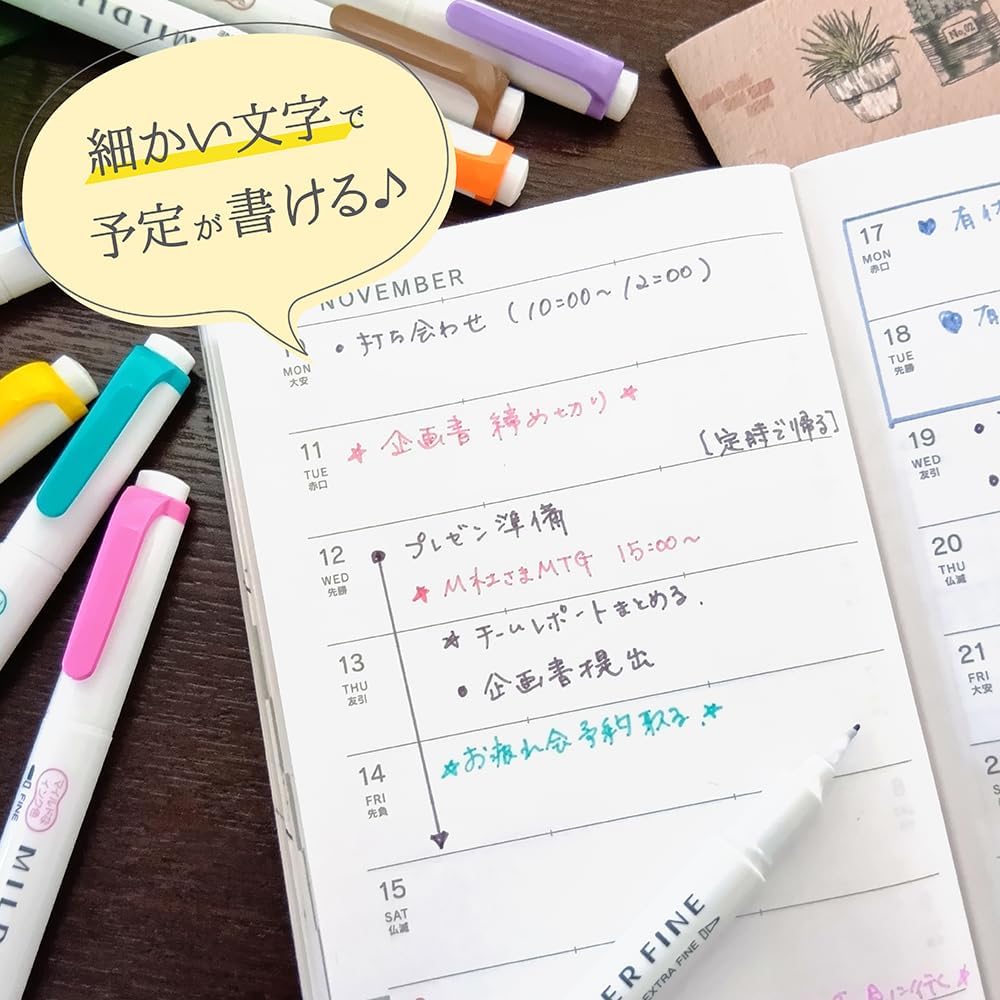 細かい文字で
予定が書ける♪
MILDLI
No.02
NOVEMBER
MON
大安
• 打ち合わせ (10:00〜12:00)
11
TUE
赤口
★ 企画書 締め切り ★
[定時で帰る]
12
WED
先勝
プレゼン準備
★ M社さまMTG 15:00〜
13
THU
友引
★ チームレポートまとめる.
• 企画書提出
14
FRI
先負
★お疲れ会予約取る.★
15
SAT
仏滅
17
MON
赤口
♥ 有休
18
TUE
先勝
♥ 有
19
WED
友引
20
THU
仏滅
21
FRI
大安
マイルドな
インク色
FINE
MILD
ER FINE
EXTRA FINE
に行く★